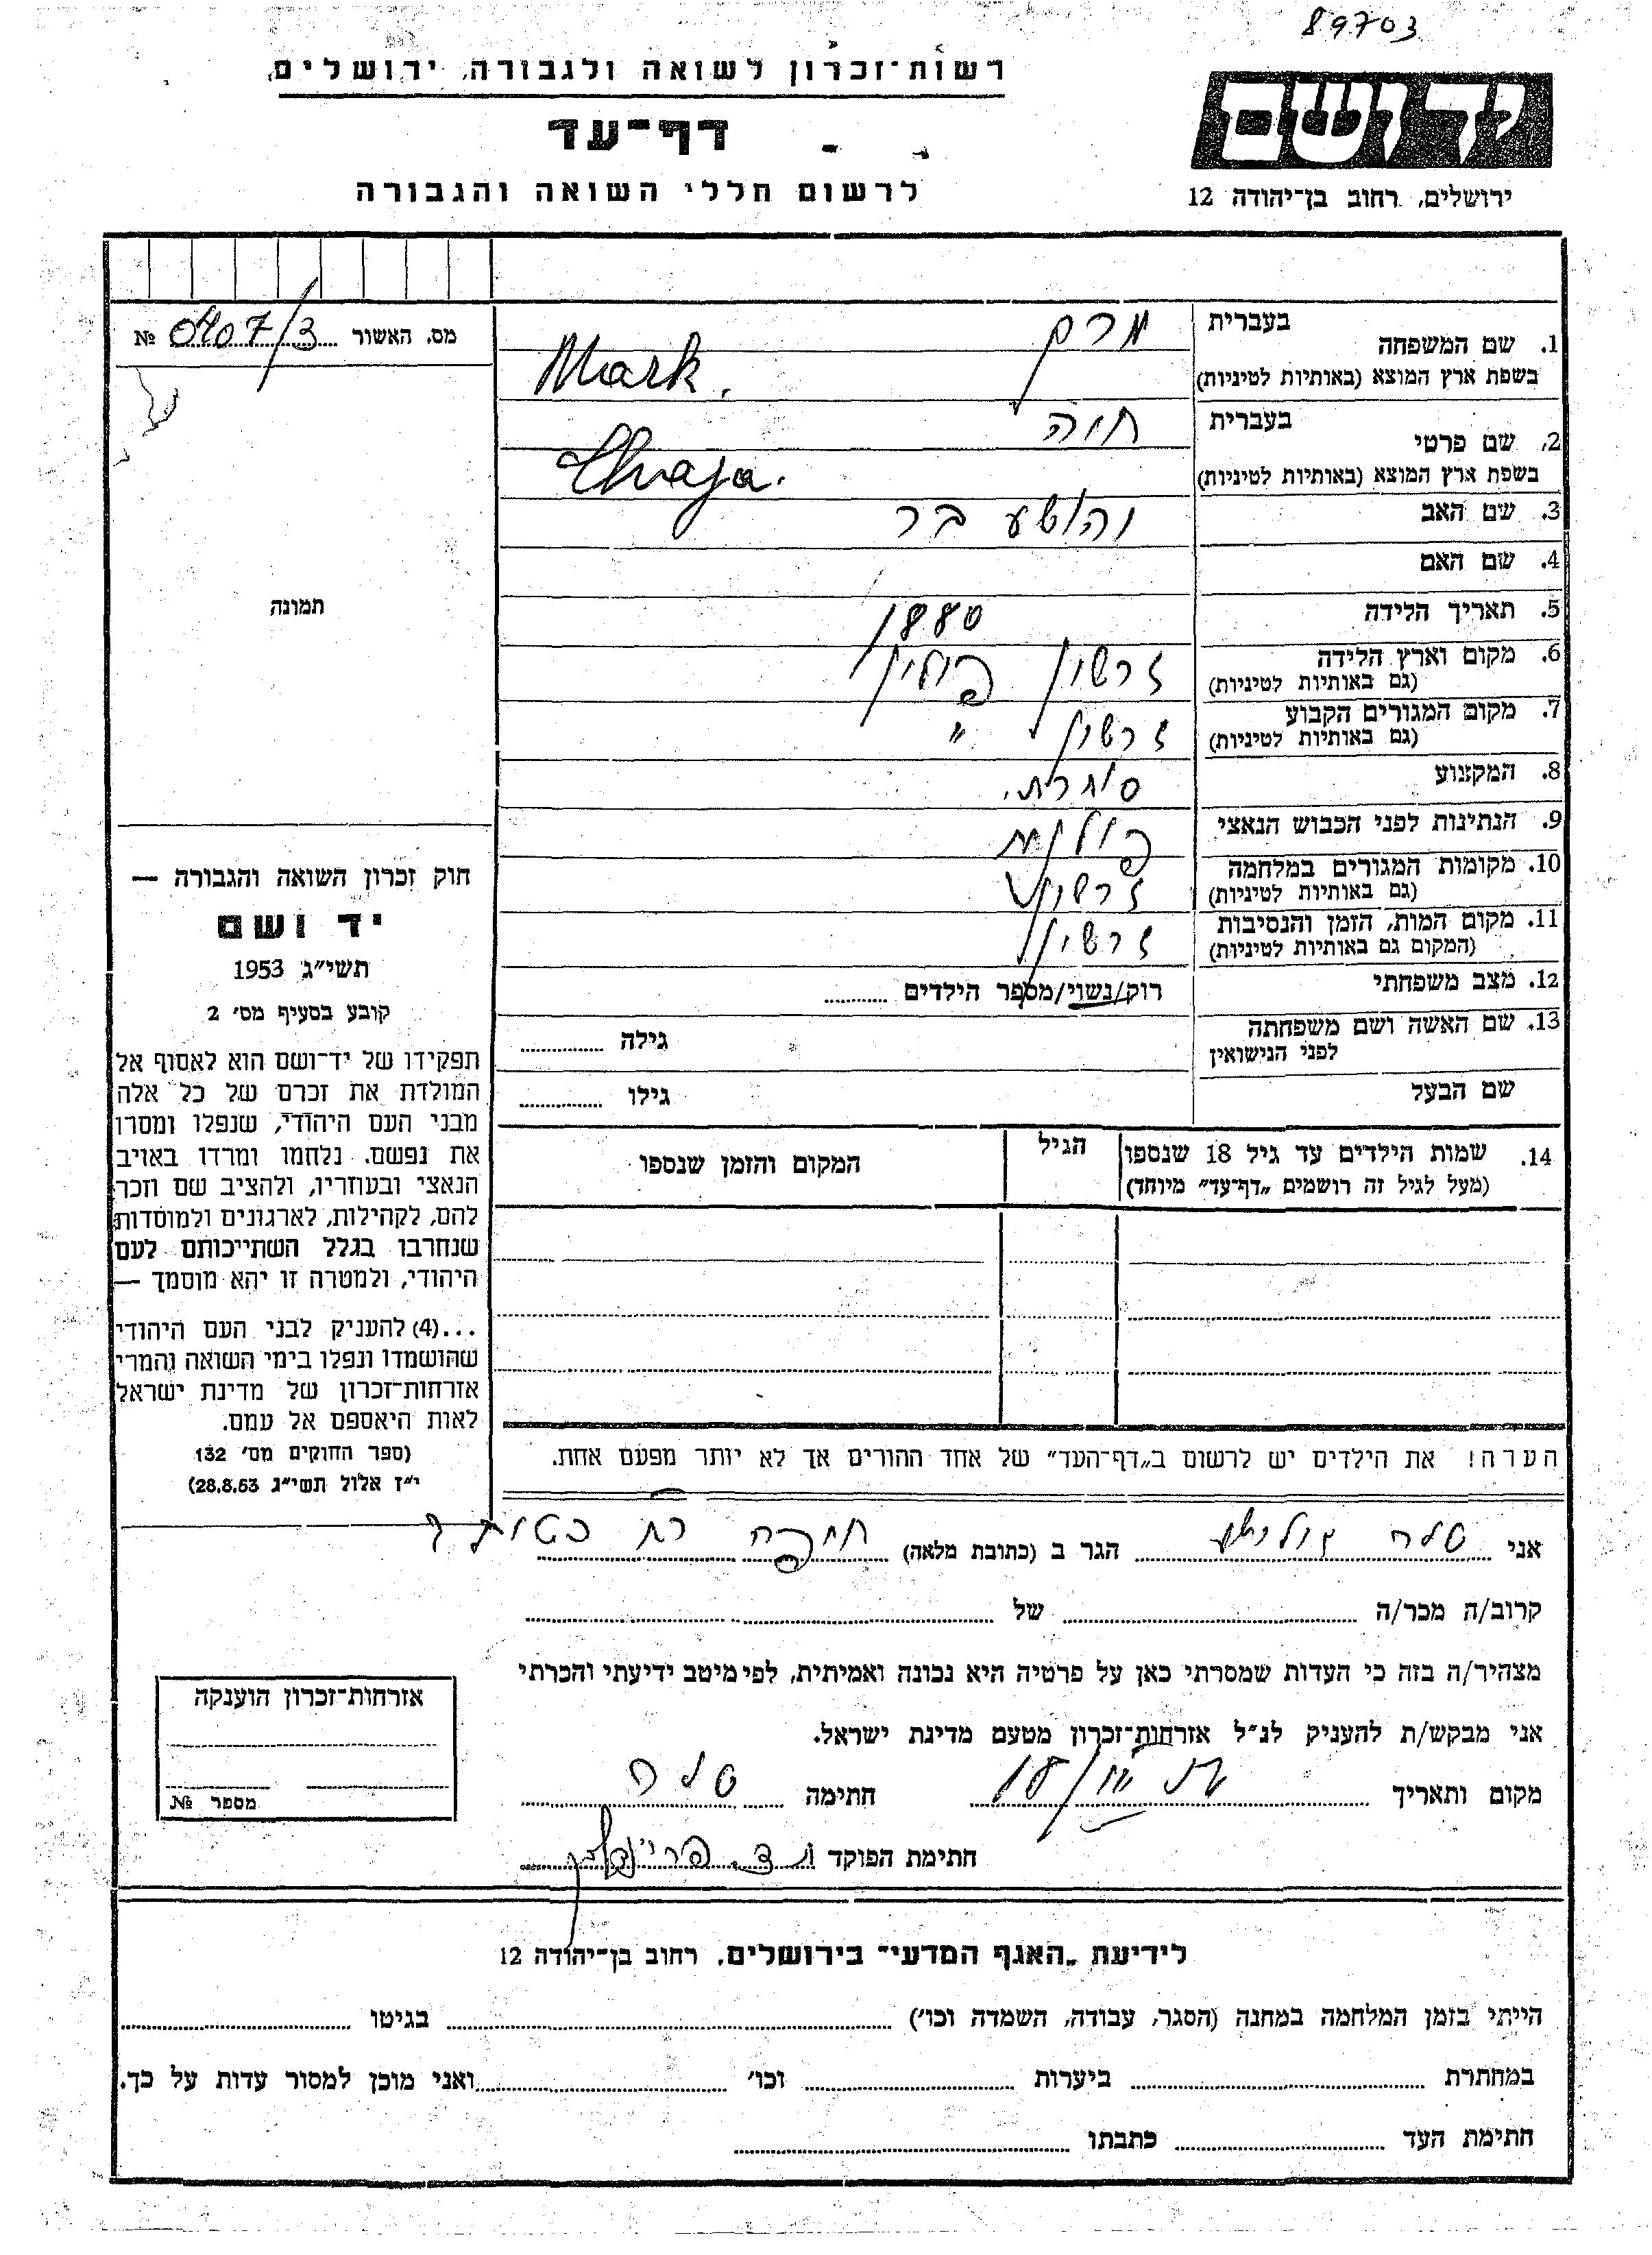 89703
רשות־זכרון לשואה ולגבורה, ירושלים
ידושם
דף־עד
לרשום חללי השואה והגבורה
ירושלים, רחוב בן־יהודה 12
מס. האשור 0407/3 №
תמונה
1. שם המשפחה
בעברית מרק
בשפת ארץ המוצא (באותיות לטיניות) Mark.
2. שם פרטי
בעברית חיה
בשפת ארץ המוצא (באותיות לטיניות) Chaja.
3. שם האב יהושע בר
4. שם האם
5. תאריך הלידה 1880
6. מקום וארץ הלידה
(גם באותיות לטיניות) פולין
7. מקום המגורים הקבוע
(גם באותיות לטיניות) "
8. המקצוע סוחרת.
9. הנתינות לפני הכבוש הנאצי פולנית
10. מקומות המגורים במלחמה
(גם באותיות לטיניות)
11. מקום המות, הזמן והנסיבות
(המקום גם באותיות לטיניות)
12. מצב משפחתי רוק/נשוי/מספר הילדים
13. שם האשה ושם משפחתה
לפני הנישואין גילה
שם הבעל גילו
14. שמות הילדים עד גיל 18 שנספו
(מעל לגיל זה רושמים „דף־עד" מיוחד)
הגיל
המקום והזמן שנספו
הערה! את הילדים יש לרשום ב„דף־העד" של אחד ההורים אך לא יותר מפעם אחת.
חוק זכרון השואה והגבורה —
יד ושם
תשי"ג 1953
קובע בסעיף מס' 2
תפקידו של יד־ושם הוא לאסוף אל
המולדת את זכרם של כל אלה
מבני העם היהודי, שנפלו ומסרו
את נפשם. נלחמו ומרדו באויב
הנאצי ובעוזריו, ולהציב שם וזכר
להם, לקהילות, לארגונים ולמוסדות
שנחרבו בגלל השתייכותם לעם
היהודי, ולמטרה זו יהא מוסמך —
...(4) להעניק לבני העם היהודי
שהושמדו ונפלו בימי השואה והמרי
אזרחות־זכרון של מדינת ישראל
לאות היאספם אל עמם.
(ספר החוקים מס' 132
י"ז אלול תשי"ג 28.8.53)
אני הגר ב (כתובת מלאה) חיפה
קרוב/ה מכר/ה של
מצהיר/ה בזה כי העדות שמסרתי כאן על פרטיה היא נכונה ואמיתית, לפי מיטב ידיעתי והכרתי
אני מבקש/ת להעניק לנ"ל אזרחות־זכרון מטעם מדינת ישראל.
מקום ותאריך חתימה
חתימת הפוקד
אזרחות־זכרון הוענקה
מספר №
לידיעת „האגף המדעי" בירושלים. רחוב בן־יהודה 12
הייתי בזמן המלחמה במחנה (הסגר, עבודה, השמדה וכו') בגיטו
במחתרת ביערות וכו' ואני מוכן למסור עדות על כך.
חתימת העד כתבתו